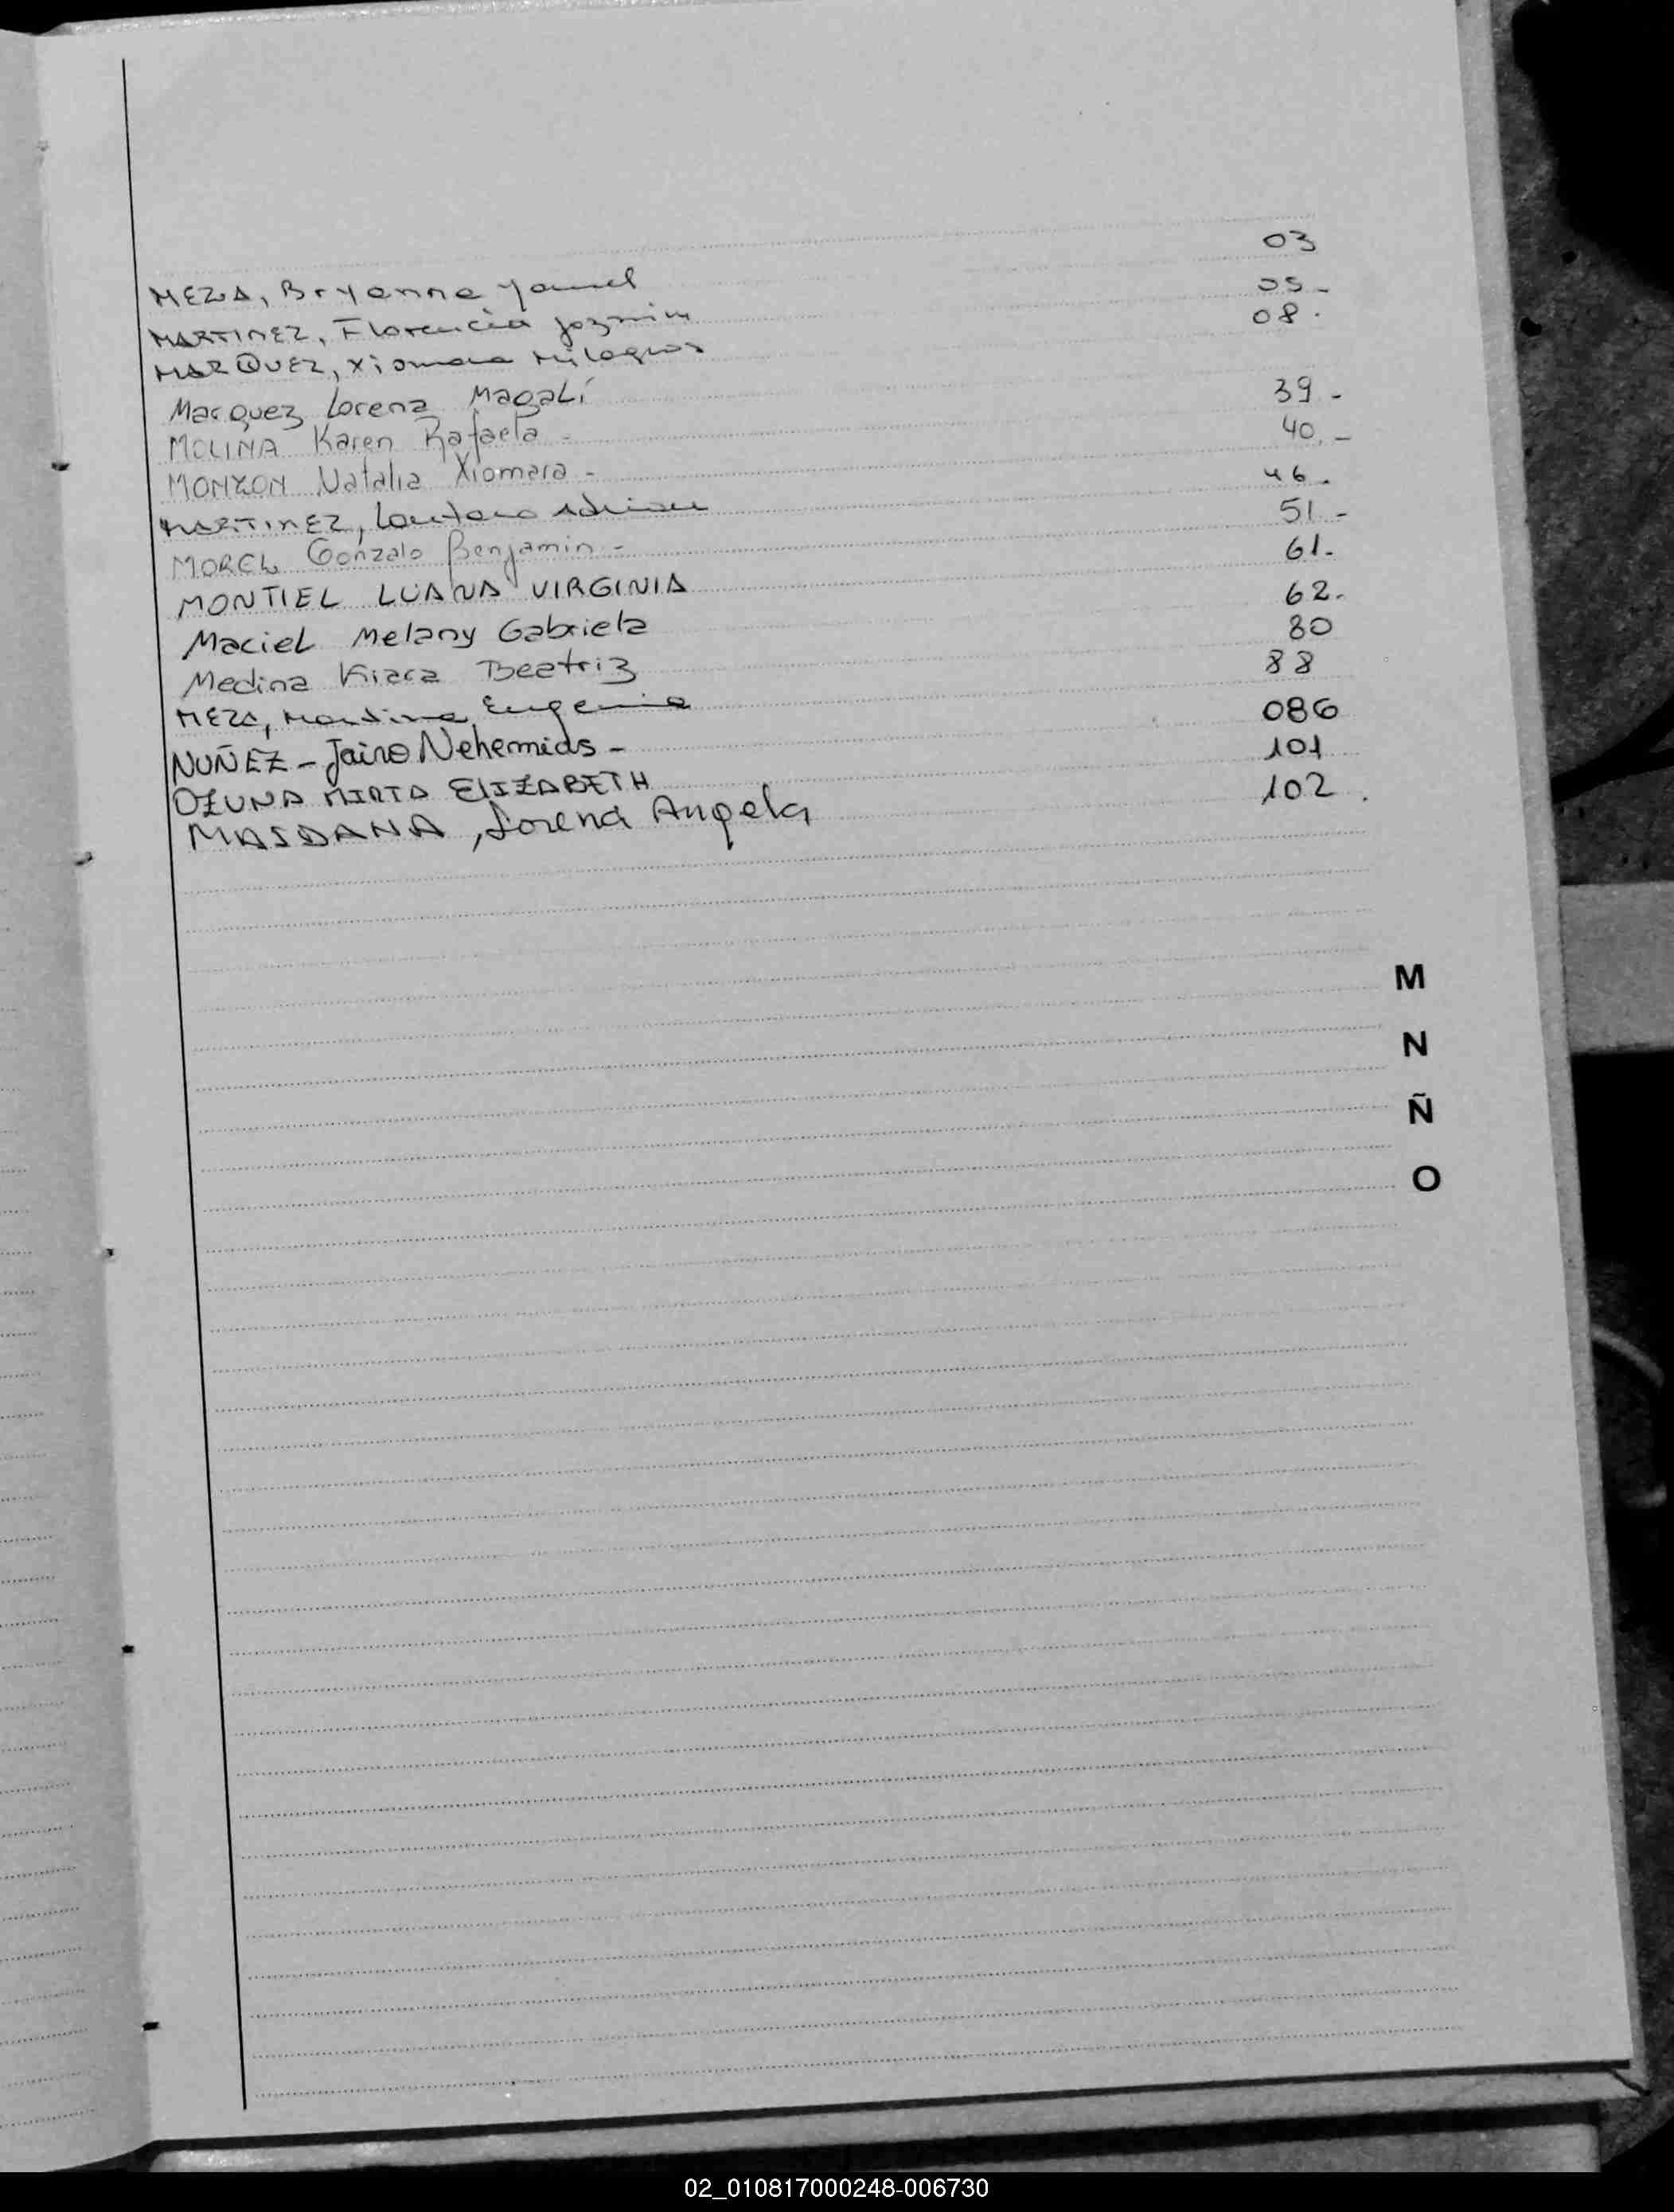 MEZA, Bryanna Yamel 03
MARTINEZ, Florencia Jozmin 05-
MARQUEZ, Xiomara Milagros 08.
Marquez Lorena Magalí
MOLINA Karen Rafaela - 39-
MONZON Natalia Xiomara - 40.-
MARTINEZ, Lautaro Adrian 46.
MOREL Gonzalo Benjamin - 51-
MONTIEL LUANA VIRGINIA 61-
Maciel Melany Gabriela 62-
Medina Kiara Beatriz 80
MEZA, Martina Eugenia 88
NUÑEZ - Jairo Nehemias - 086
OZUNA MIRTA ELIZABETH 101
MASDANA, Lorena Angela 102.
M
N
Ñ
O
02_010817000248-006730